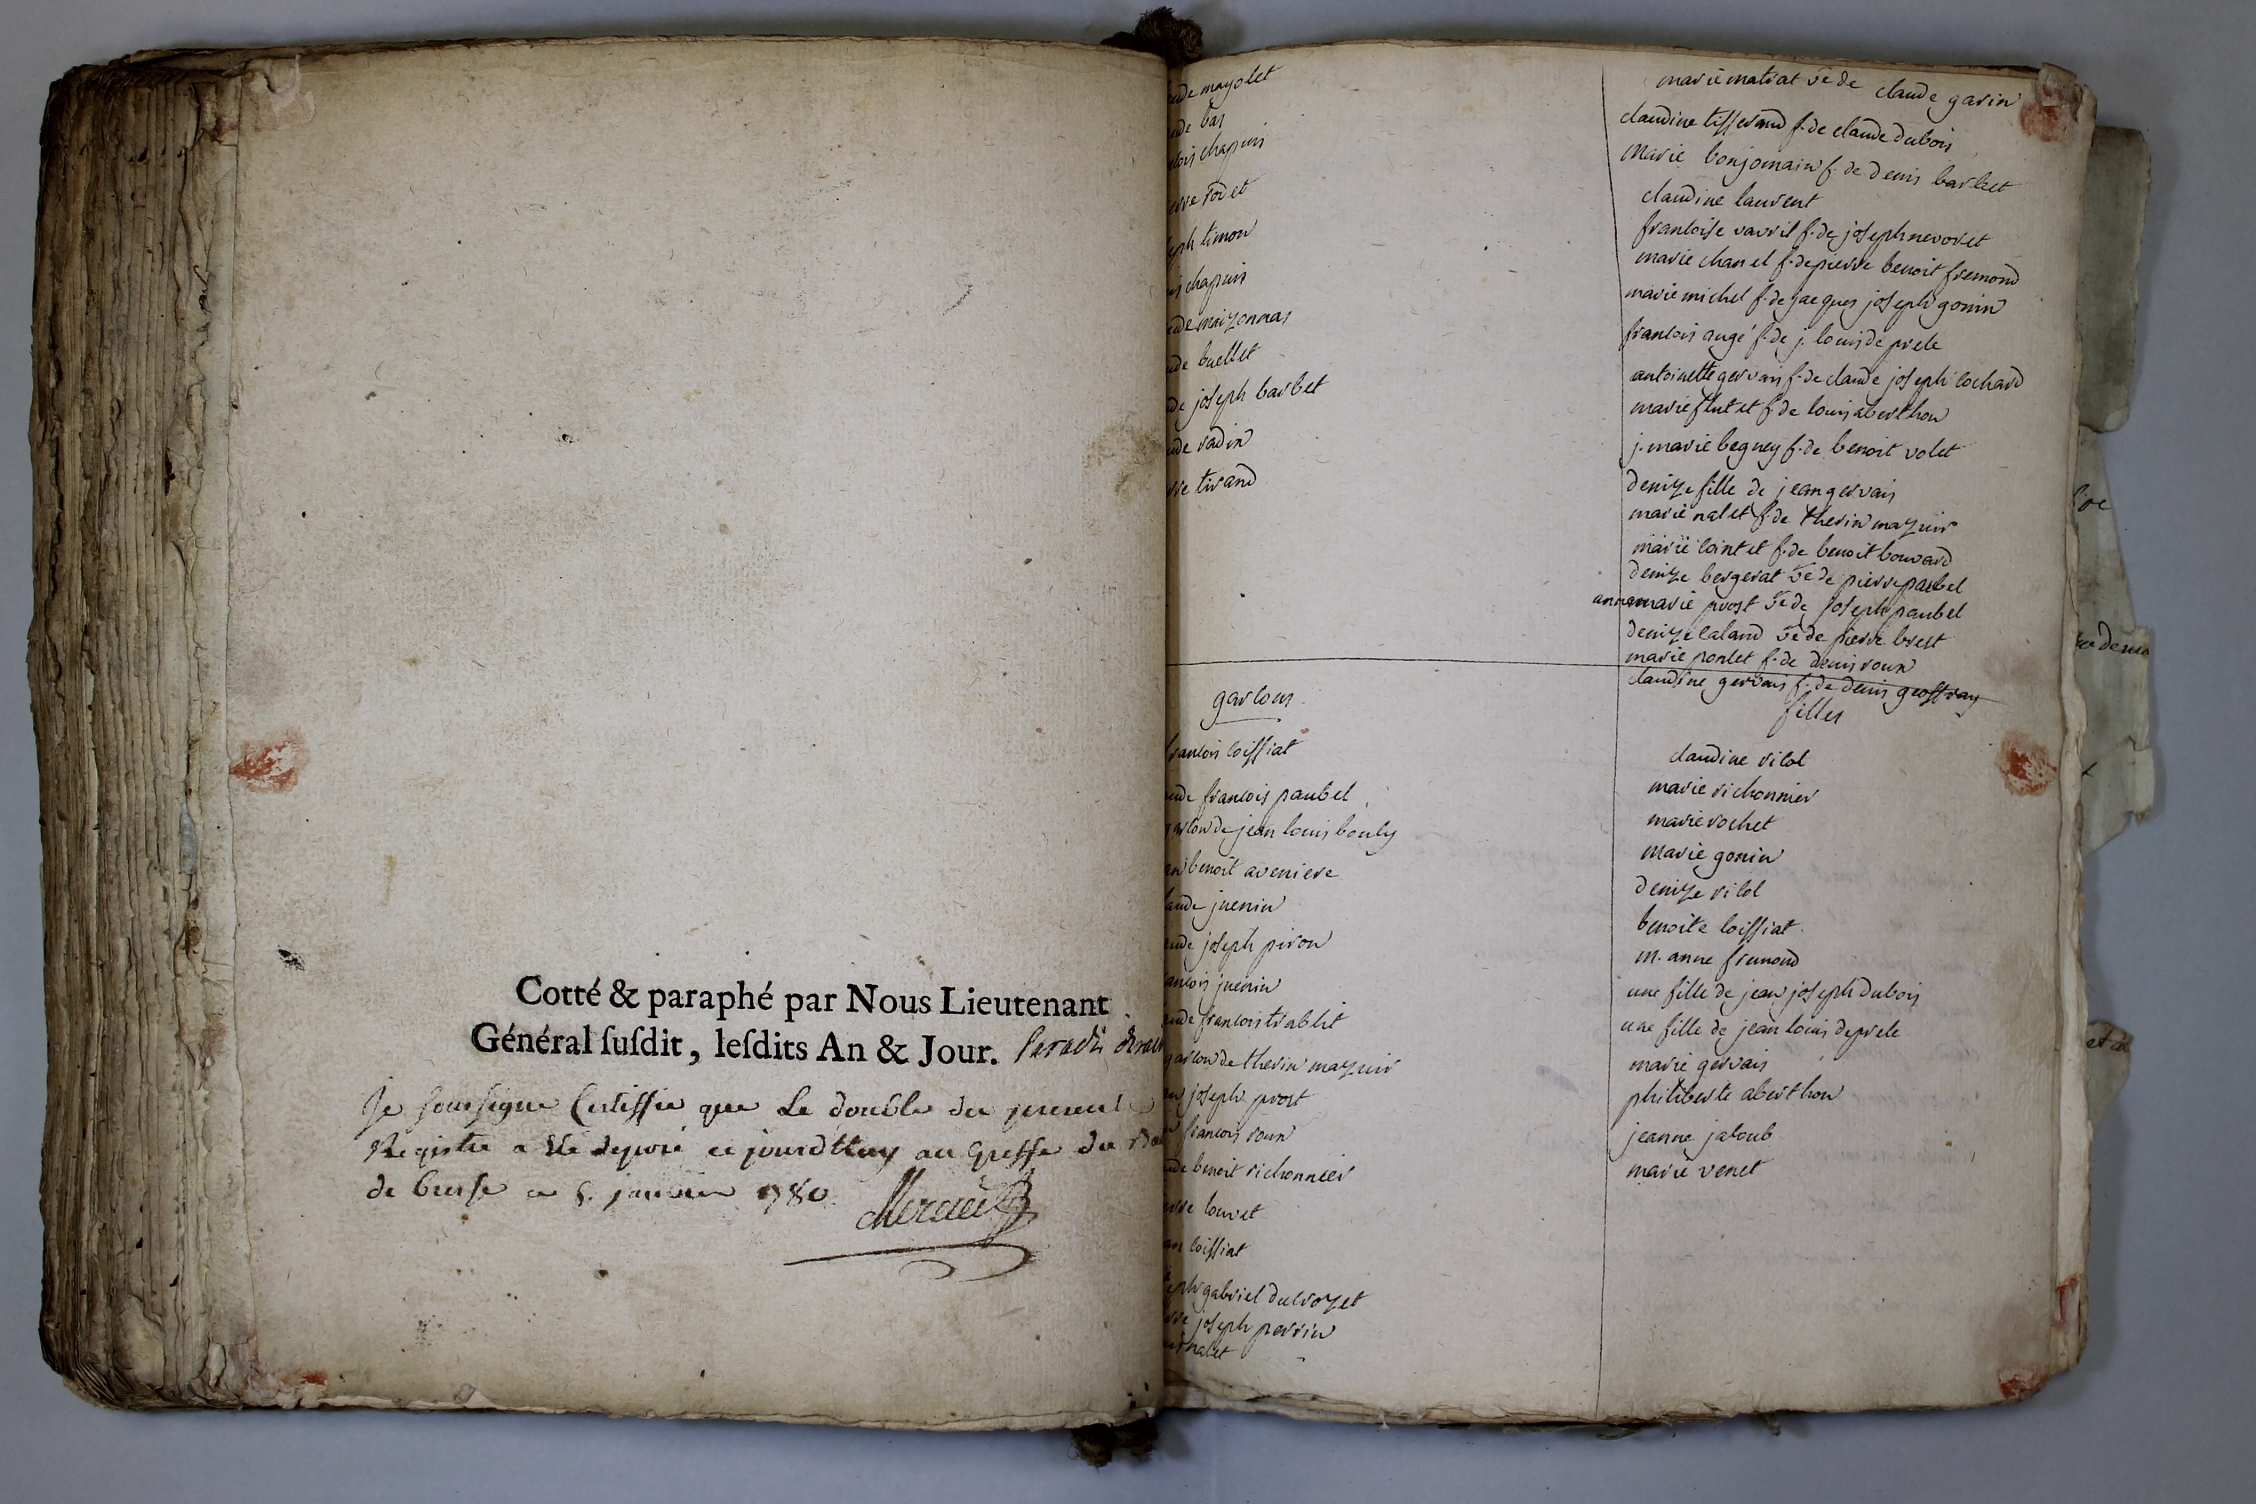 Cotté & paraphé par Nous Lieutenant
Général susdit, lesdits An & Jour.
Je soussigné Certiffie que Le double du present
Registre a été deposé ce jourd'huy au Greffe du
de bresse ce 5. janvier 1780
mayolet
bas
chapuis
rodet
timon
chapuis
maizonnas
buellet
joseph barbet
radin
tirand
garcons
francois coissiat
francois paubel
garcon de jean louis bouly
benoit aveniere
juenin
joseph piron
juenin
francois trablit
garcon de therin mazuir
joseph prost
francois roux
benoit richonnier
louvet
coissiat
gabriel ducrozet
joseph perrin
nalet
marie matrat ve de claude gavin
claudine tisserand f. de claude dubois
marie bonjomain f. de denis barbet
claudine laurent
francoise vavril f. de joseph nevoret
marie chanel f. de pierre benoit fremond
marie michel f. de jacques joseph gonin
francois augé f. de j. louis de prele
antoinette gervais f. de claude joseph cochard
marie flutet f. de louis aberthon
j. marie beguey f. de benoit volet
denize fille de jean gervais
marie nalet f. de therin mazuir
marie cointet f. de benoit bouvard
denize bergerat ve de pierre paubel
anne marie prost ve de joseph paubel
denize caland ve de pierre brest
marie ponlet f. de denis roux
claudine gervais f. de denis geoffray
filles
claudine rilol
marie richonnier
marie rochet
marie gonin
denize rilol
benoite coissiat
m. anne fremond
une fille de jean joseph dubois
une fille de jean louis deprele
marie gervais
philiberte aberthon
jeanne jacoub
marie venet